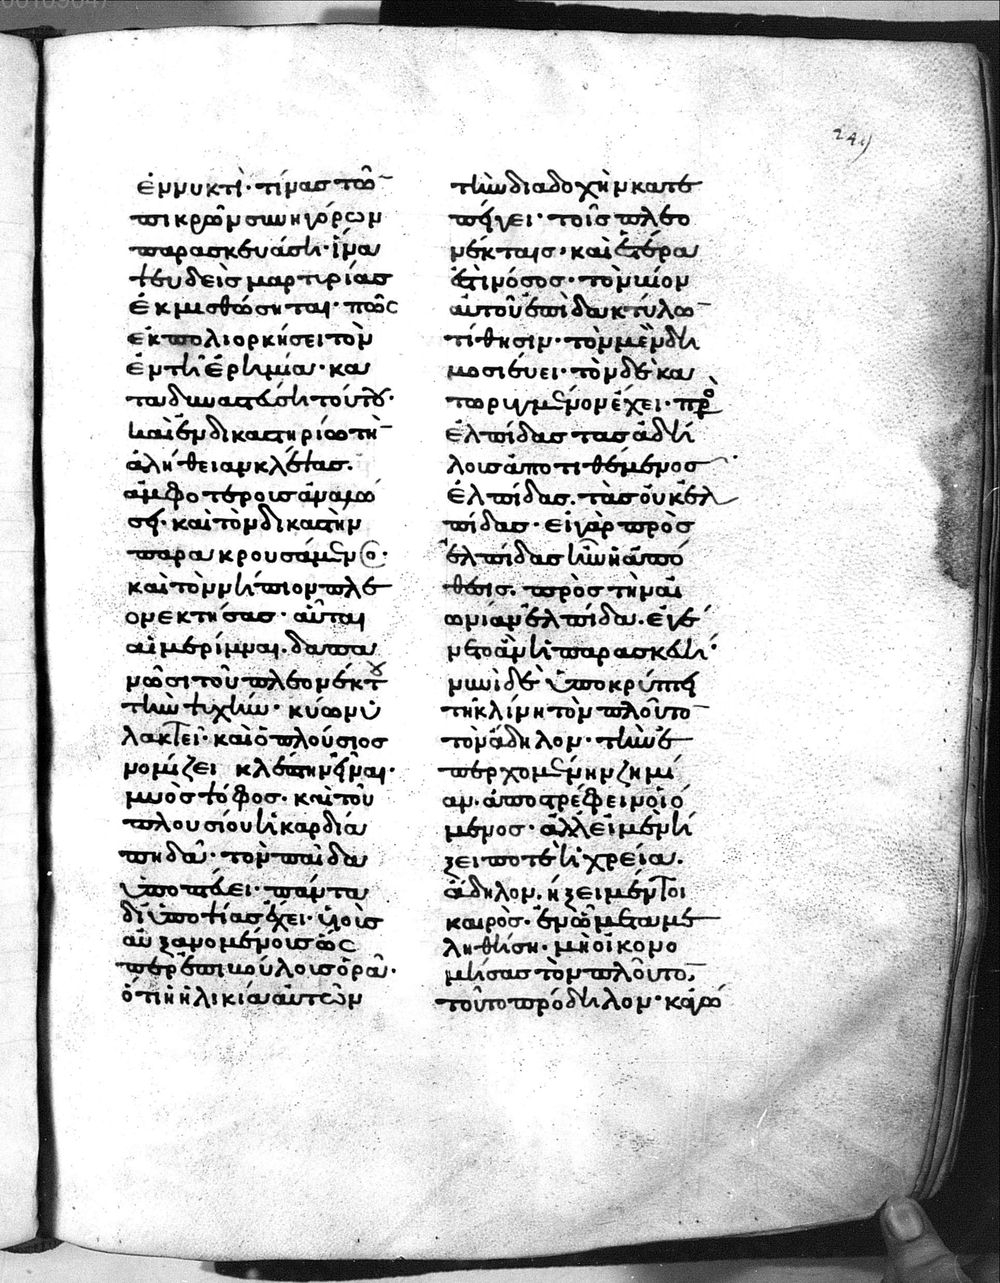 249
ἐν νυκτὶ· τίνας τῶ
πικρῶν συνηγόρων
παρασκευάση· ἵνα
ψευδεῖς μαρτυρίας
ἐκμισθώσηται· πῶς
ἐκπολιορκήσει τὸν
ἐν τῆ ἐρημία· κα
ταδυναστεύση τοῦτο·
καὶ ἐν δικαστηρίω τὴ
ἀλήθειαν κλέψας.
ἀμφοτέροις ἀναμώ
σε· καὶ τὸν δικαστὴν
παρακρουσάμενος·
καὶ τὸν νήπιον πλε
ονεκτήσας· αὗται
αἱ μέριμναι. δαπα
νῶσι τοῦ πλεονέκτου
τὴν ψυχήν· κύων ὑ
λακτεῖ· καὶ ὁ πλούσιος
νομίζει κλέπτην εἶναι·
μυὸς ψόφος· καὶ τοῦ
πλουσίου ἡ καρδία
πηδᾶ· τὸν παῖδα
ὑποπτεύει· πάντα
δι' ὑποψίας ἔχει· υἱοῖς
αὐξανομένοις ὡς
περ ἐπιβούλοις ὁρᾶ·
ὅτι ἡ ἡλικία αὐτῶν
τὴν διαδοχὴν κατε
πείγει· τοῖς πλεο
νέκταις· καὶ ἑτέρα
ἔτι νόσος· τὸν υἱὸν
αὐτοῦ ἐπὶ δακτύλω
τίθησιν· τὸν μὲν δη
μοσιεύει· τὸν δὲ κα
τωρυγμένον ἔχει· πρὸς
ἐλπίδας τὰς ἀδή
λοις ἀποτιθέμενος
ἐλπίδας. τὰς οὐκ ἐλ
πίδας· εἰ γὰρ πρὸς
ἐλπίδας ἦν ἡ ἀπό
θεσις. πρὸς τὴν αἰ
ωνίαν ἐλπίδα. ἐγέ
νετο ἂν ἡ παρασκευή·
νυνὶ δὲ ὑποκρύπτει
τῆ κλίνη τὸν πλοῦτο
τὸν ἄδηλον· τὴν ἐ
περχομένην ζημί
αν. ἀποστρέφειν οἰό
μενος· ἀλλ' εἰ μὲν ἥ
ξει ποτὲ ἡ χρεία.
ἄδηλον. ἥξει μέντοι
καιρὸς· ἐν ὧ μεταμε
ληθήση· μὴ οἰκονο
μήσας τὸν πλοῦτο,
τοῦτο πρόδηλον· κἀγώ